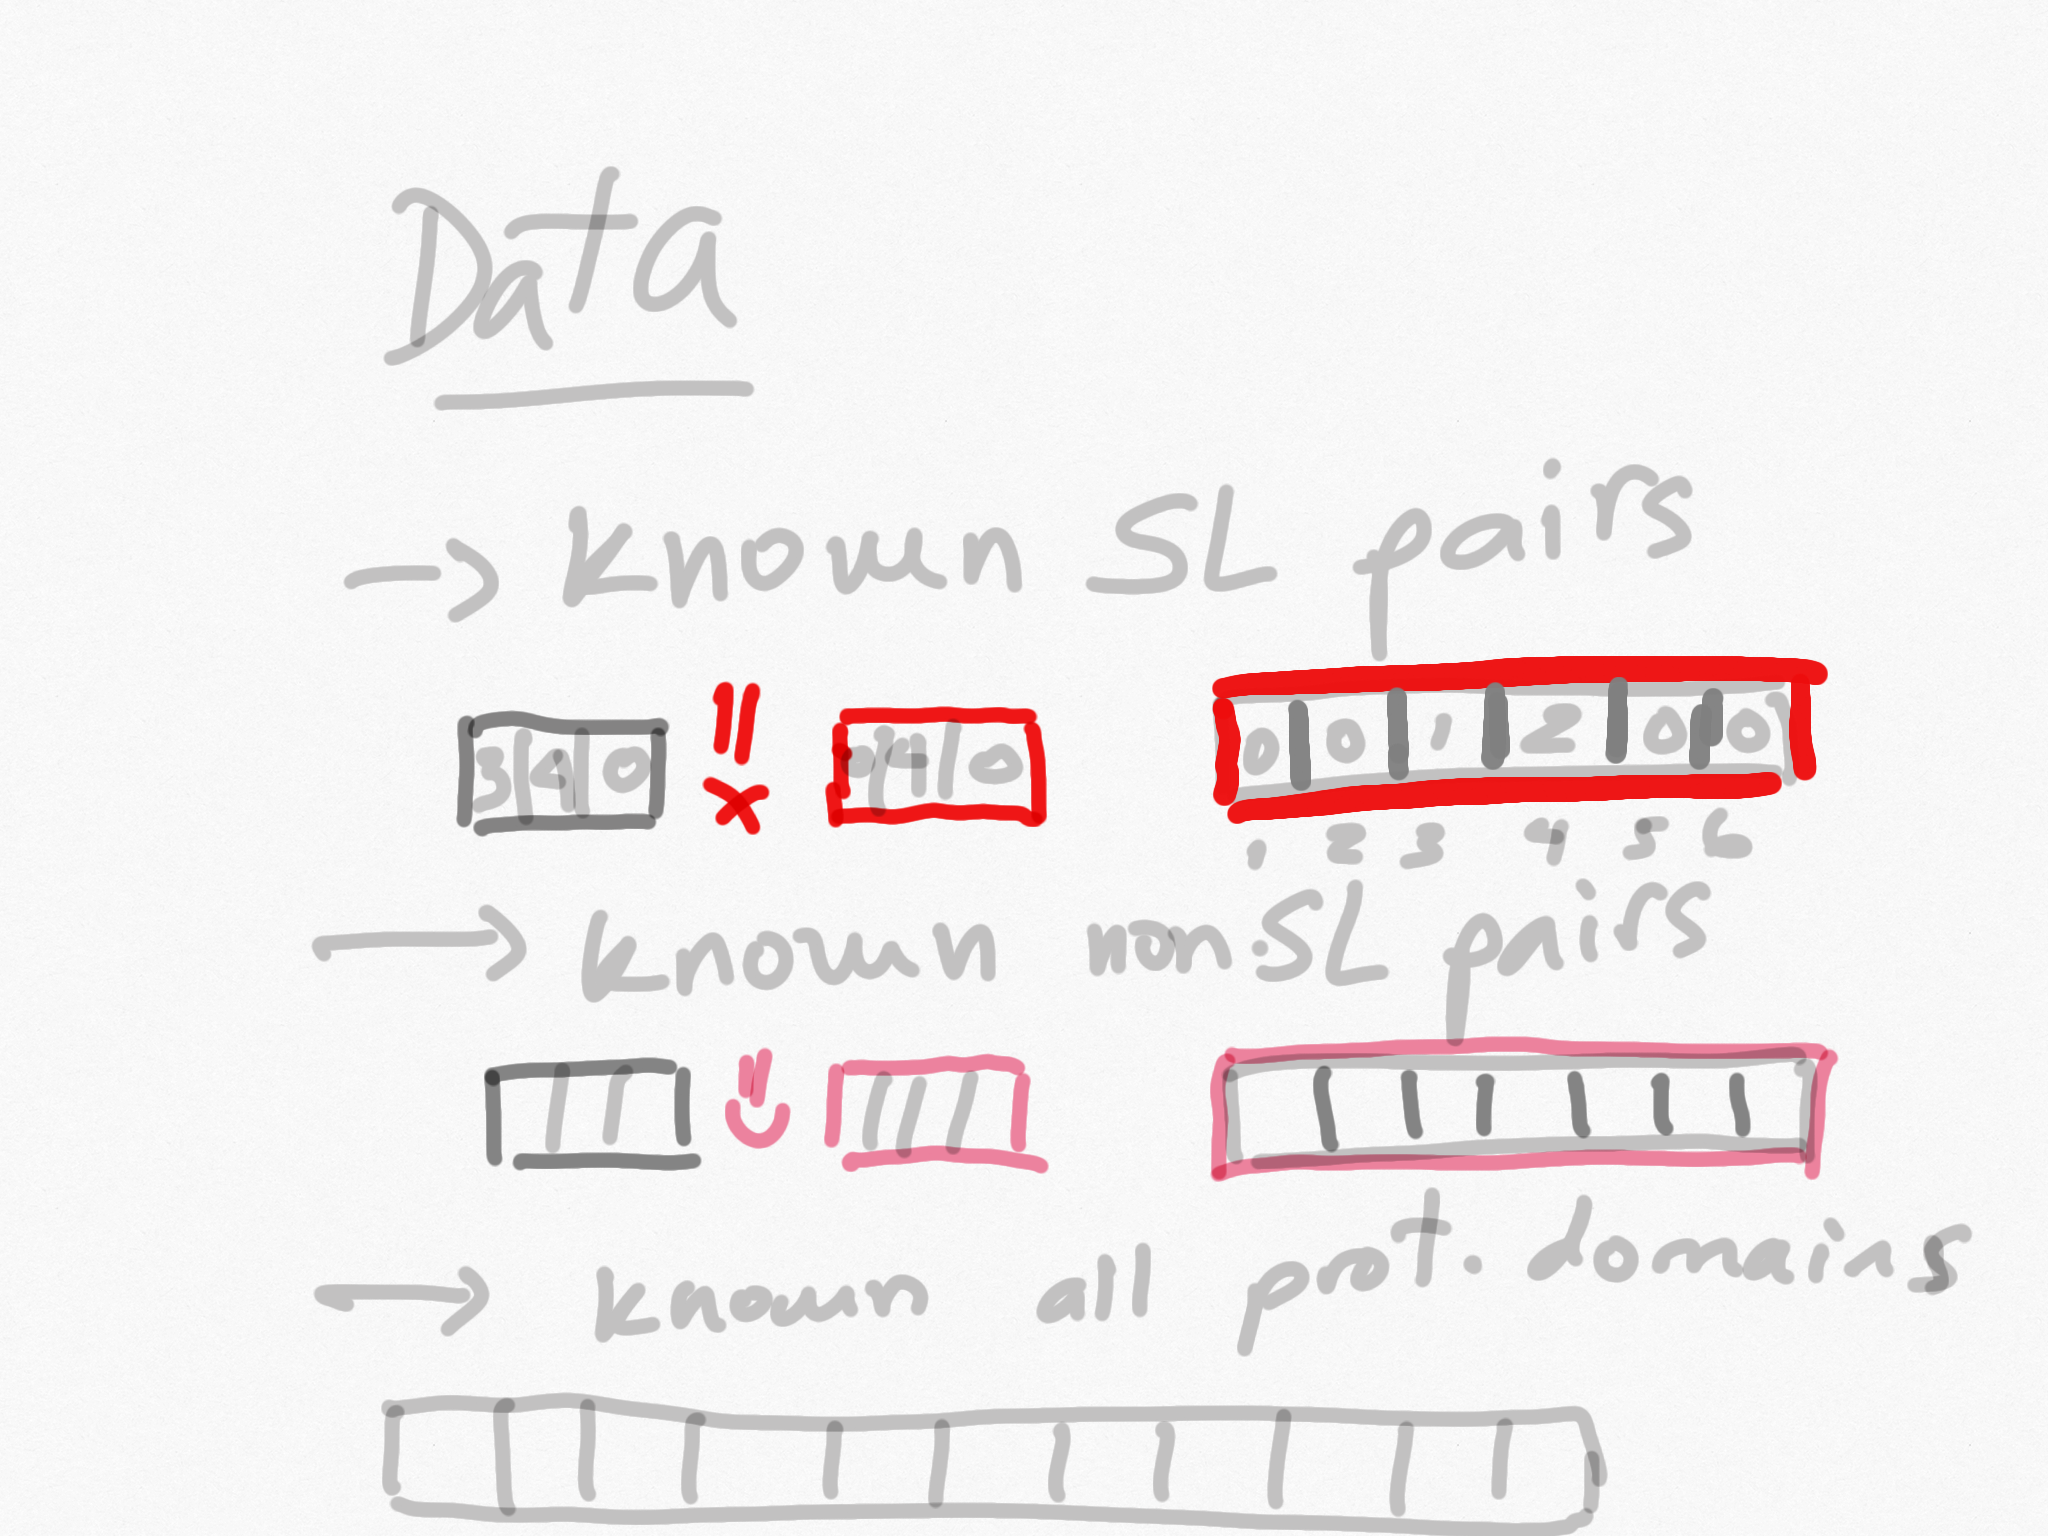 Data
→ known SL pairs
3 4 0 4 0 0 0 1 2 0 0
1 2 3 4 5 6
→ known non-SL pairs
→ known all prot. domains